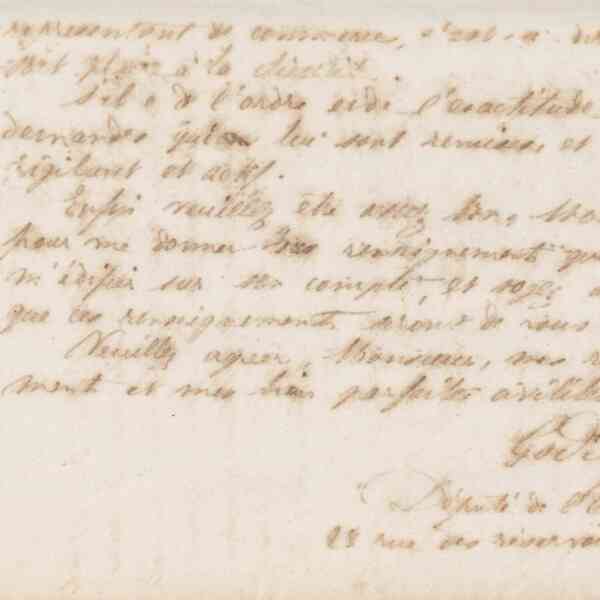 représentant de commerce, c'est-à-
soit placé à la
s'il a de l'ordre et de l'exactitude
demandes qu'on lui sont remises, et
vigilant et actif.
Enfin veuillez être assez bon,
pour me donner tous renseignements
m'édifier sur son compte, et soyez
que ces renseignements seront de vous
Veuillez agréer, Monsieur, mes
ment et mes très parfaites civilités
Député de
28 rue des réservoi